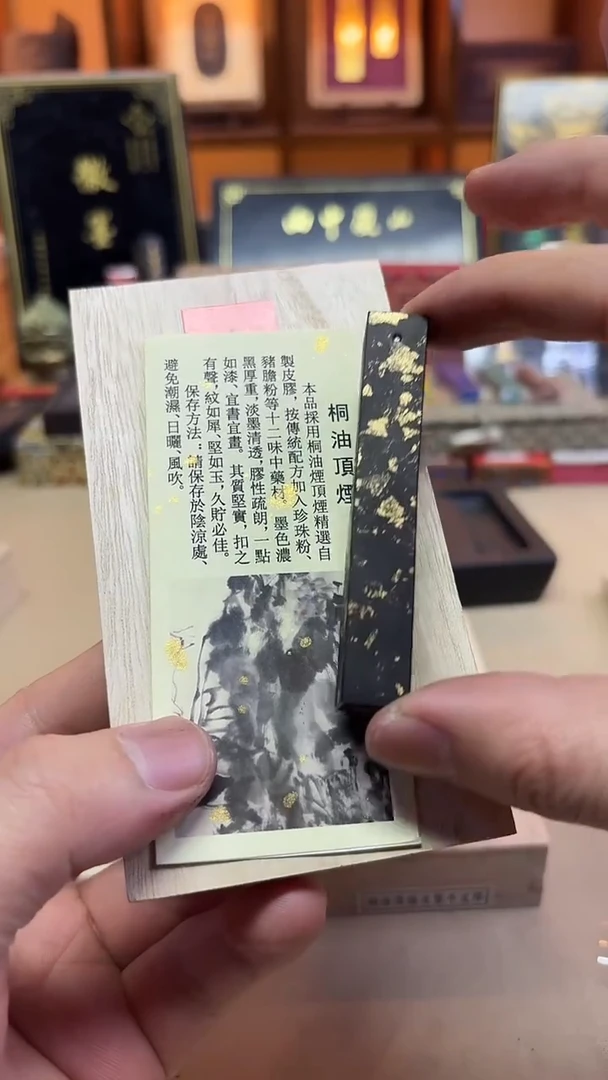 徽墨
桐油頂煙
本品採用桐油煙頂煙精選自
製皮膠，按傳統配方加入珍珠粉、
豬膽粉等十二味中藥材。墨色濃
黑厚重，淡墨清透，膠性疏朗，一點
如漆、宜書宜畫。其質堅實，扣之
有聲，紋如犀、堅如玉，久貯必佳。
保存方法：請保存於陰涼處、
避免潮濕、日曬、風吹。